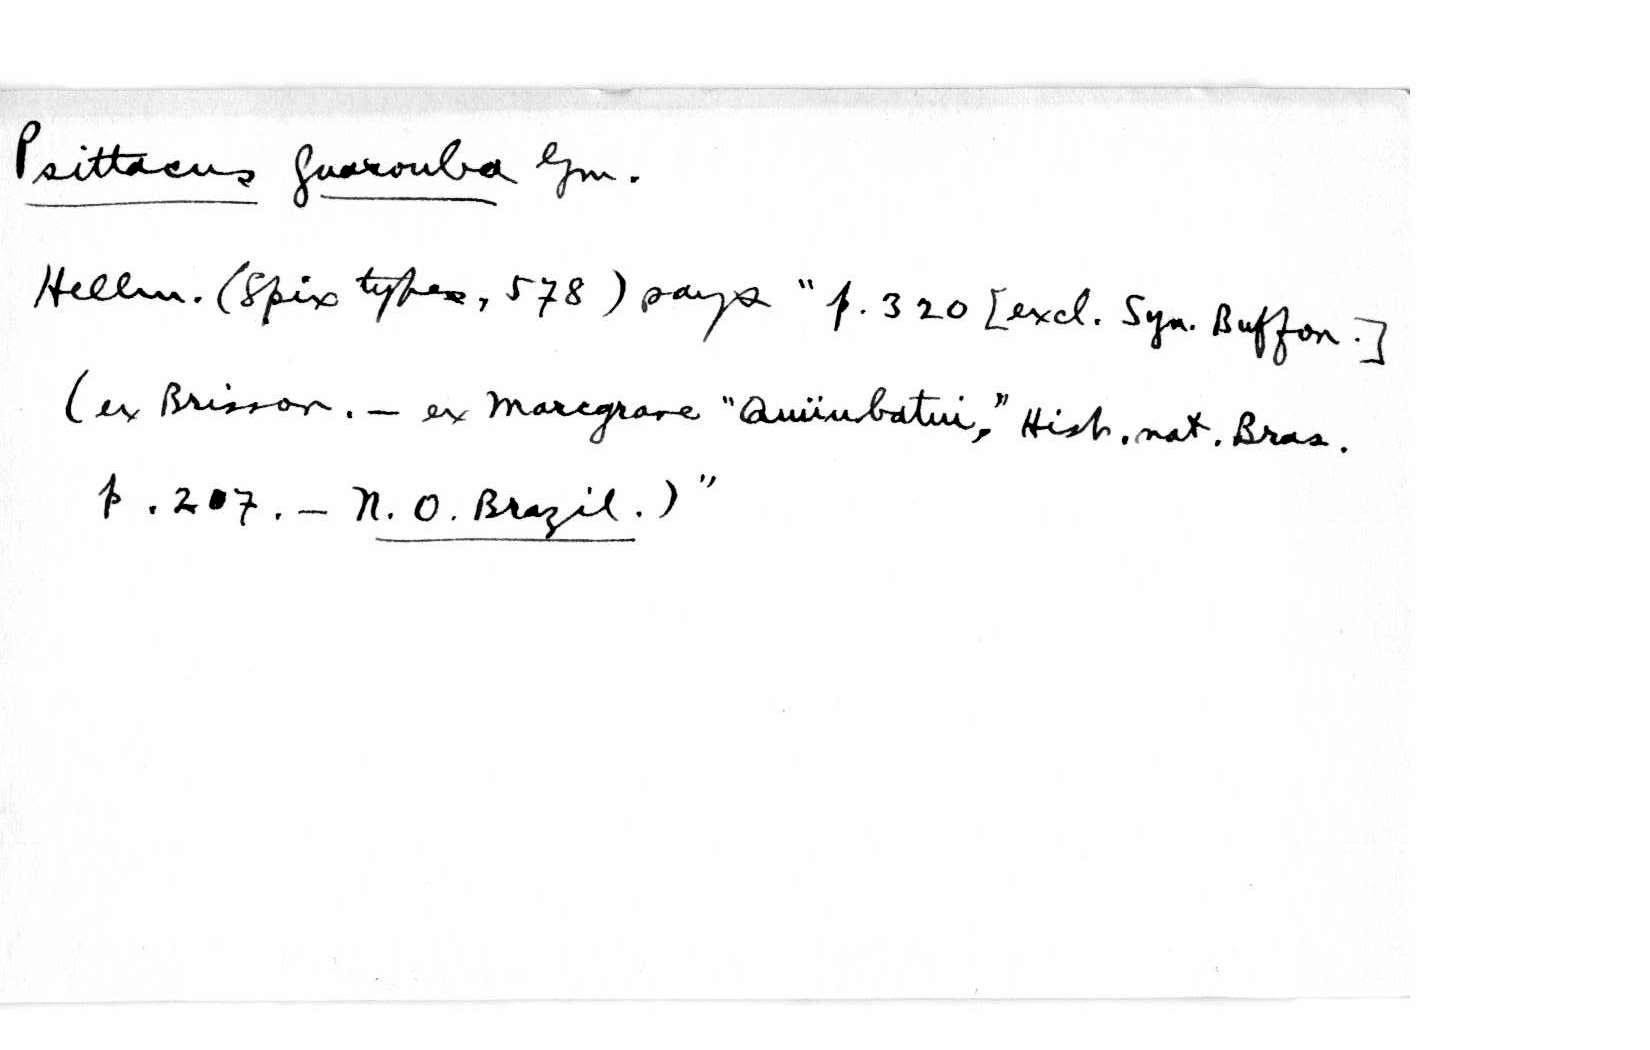 Psittacus guarouba Gm.
Hellm. (Spix types, 578) says "p. 320 [excl. Syn. Buffon.]
(ex Brisson. — ex Marcgrave "Quiiubatui," Hist. nat. Bras.
p. 207. — N. O. Brazil.)"